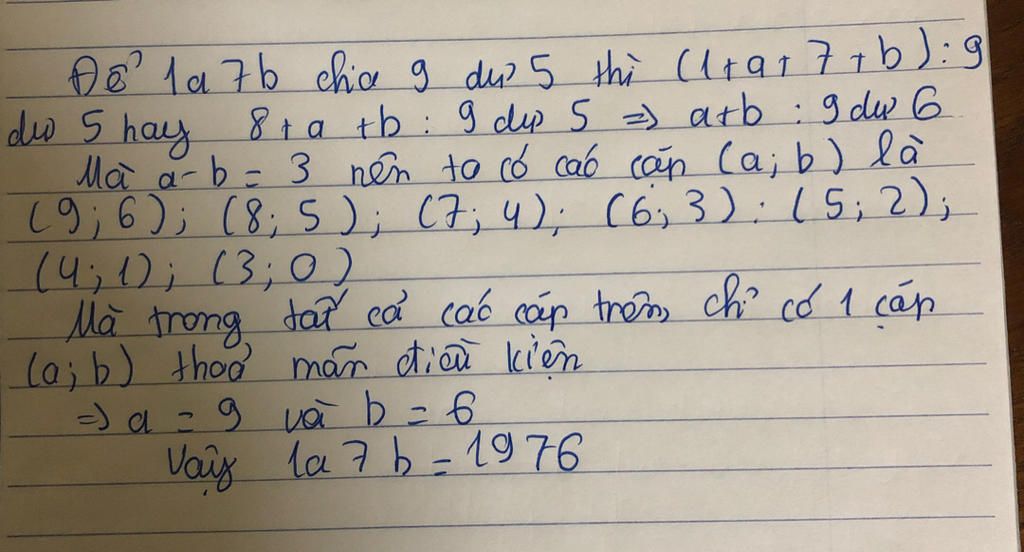 Để 1a7b chia 9 dư 5 thì (1+a+7+b) : 9
dư 5 hay 8+a+b : 9 dư 5 => a+b : 9 dư 6
Mà a-b = 3 nên ta có các cặp (a; b) là
(9; 6); (8; 5); (7; 4); (6; 3); (5; 2);
(4; 1); (3; 0)
Mà trong tất cả các cặp trên, chỉ có 1 cặp
(a; b) thoả mãn điều kiện
=> a = 9 và b = 6
Vậy 1a7b = 1976